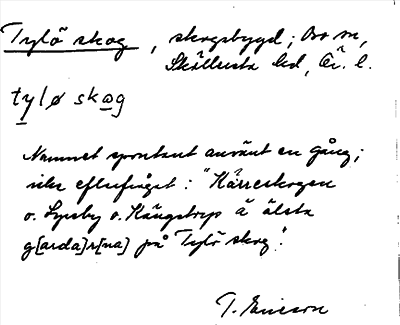 Tylö skog, skogsbygd; Bo sn,
Skällvita hd, Ör. l.
tylø skog
Namnet spontant använt en gång;
icke efterfrågat: "Kärreskogen
o. Lyneby o. Kängstorp ä älsta
g[arda]r[na] på Tylö skog".
T. Ericson